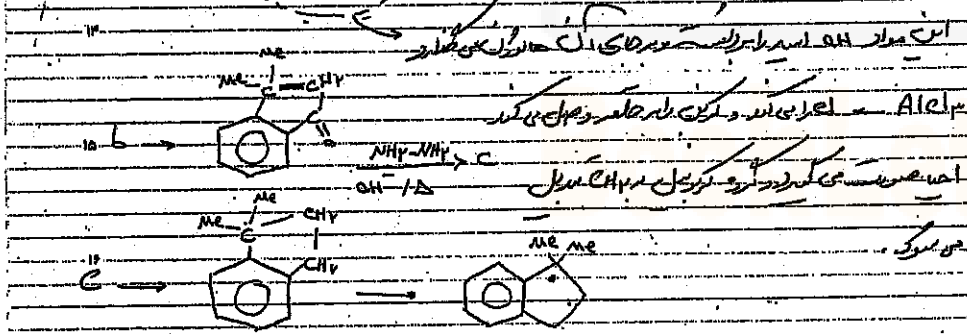 ۱۳
این مواد OH اسید را برداشته و به جای آن هالوژن می گذارد
Me Me - C = CH۲
C
O
AlCl۳ - را می کند و کربن را به حلقه وصل می کند
۱۵ b →
NH۲-NH۲
OH⁻/Δ > C
احیا صورت می گیرد و گروه کربونیل به CH۲ تبدیل
می شود.
Me Me - C - CH۲
CH۲
۱۶ C → →
Me Me